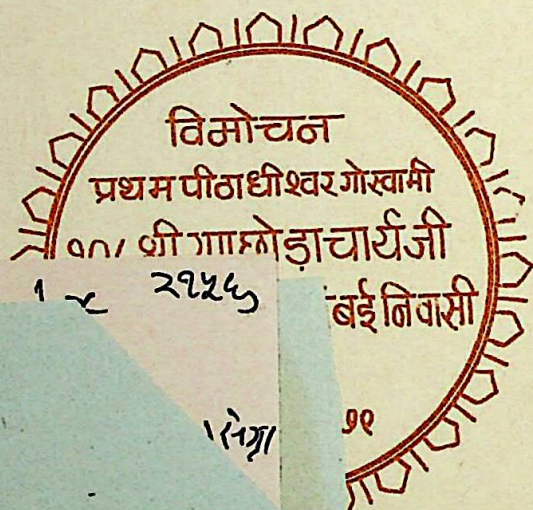 विमोचन
प्रथम पीठाधीश्वर गोस्वामी
१०८ श्री रणछोड़ाचार्यजी
२१५६
बई निवासी
७९